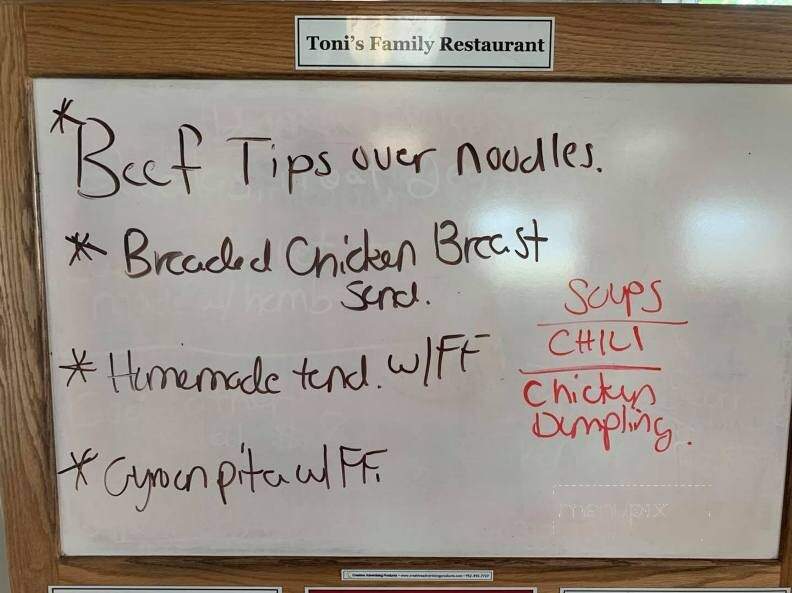 Toni's Family Restaurant
* Beef Tips over noodles.
* Breaded Chicken Breast
Sand.
* Homemade tend. w/FF
* Gyro on pita w/FF.
Soups
CHILI
Chicken
Dumpling.
menupix